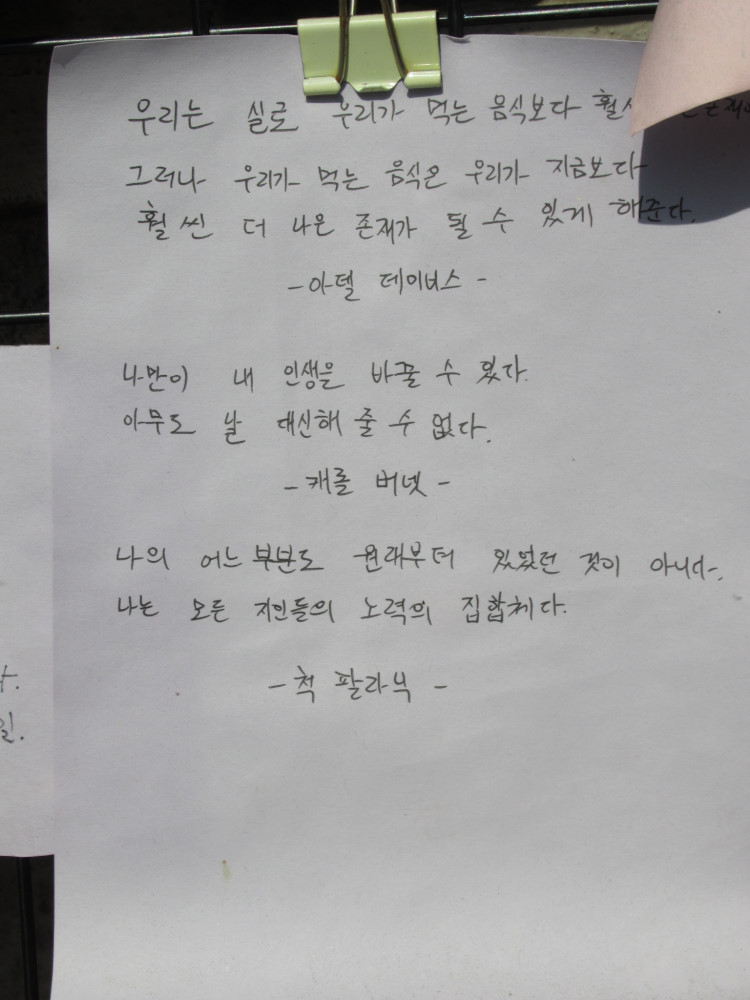 우리는 실로 우리가 먹는 음식보다
그러나 우리가 먹는 음식은 우리가 지금보다
훨씬 더 나은 존재가 될 수 있게 해준다.
-아델 데이버스-
나만이 내 인생을 바꿀 수 있다.
아무도 날 대신해 줄 수 없다.
-캐롤 버넷-
나의 어느 부분도 원래부터 있었던 것이 아니다.
나는 모든 지인들의 노력의 집합체다.
-척 팔라닉-